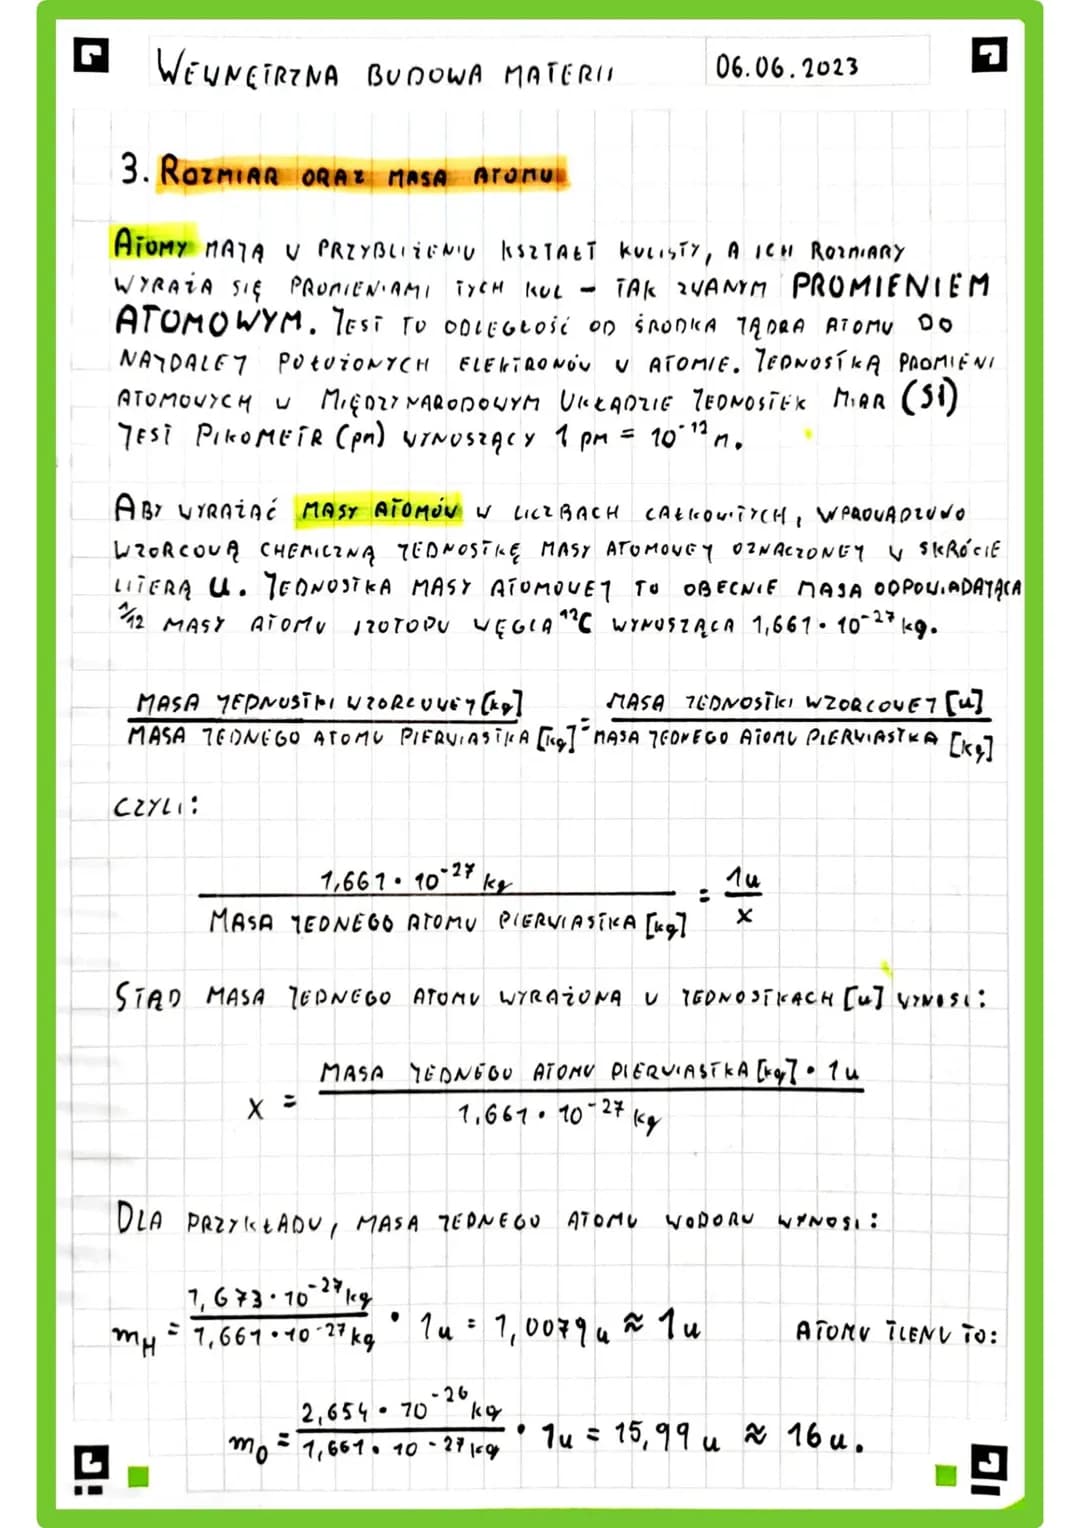 WEWNĘTRZNA BUDOWA MATERII
06.06.2023
3. ROZMIAR ORAZ MASA ATOMU
ATOMY MAJĄ W PRZYBLIŻENIU KSZTAŁT KULISTY, A ICH ROZMIARY
WYRAŻA SIĘ PROMIENIAMI TYCH KUL - TAK ZWANYM PROMIENIEM
ATOMOWYM. JEST TO ODLEGŁOŚĆ OD ŚRODKA JĄDRA ATOMU DO
NAJDALEJ POŁOŻONYCH ELEKTRONÓW W ATOMIE. JEDNOSTKĄ PROMIENI
ATOMOWYCH W MIĘDZYNARODOWYM UKŁADZIE JEDNOSTEK MIAR (SI)
JEST PIKOMETR (pm) WYNOSZĄCY 1 pm = 10⁻¹² m.
ABY WYRAŻAĆ MASY ATOMÓW W LICZBACH CAŁKOWITYCH, WPROWADZONO
WZORCOWĄ CHEMICZNĄ JEDNOSTKĘ MASY ATOMOWEJ OZNACZONEJ W SKRÓCIE
LITERĄ u. JEDNOSTKA MASY ATOMOWEJ TO OBECNIE MASA ODPOWIADAJĄCA
1/12 MASY ATOMU IZOTOPU WĘGLA ¹²C WYNOSZĄCA 1,661 · 10⁻²⁷ kg.
MASA JEDNOSTKI WZORCOWEJ [kg] / MASA JEDNEGO ATOMU PIERWIASTKA [kg] = MASA JEDNOSTKI WZORCOWEJ [u] / MASA JEDNEGO ATOMU PIERWIASTKA [kg]
CZYLI:
1,661 · 10⁻²⁷ kg / MASA JEDNEGO ATOMU PIERWIASTKA [kg] = 1u / x
STĄD MASA JEDNEGO ATOMU WYRAŻONA W JEDNOSTKACH [u] WYNOSI:
x = MASA JEDNEGO ATOMU PIERWIASTKA [kg] · 1u / 1,661 · 10⁻²⁷ kg
DLA PRZYKŁADU, MASA JEDNEGO ATOMU WODORU WYNOSI:
m_H = 1,673 · 10⁻²⁷ kg / 1,661 · 10⁻²⁷ kg · 1u = 1,0079 u ≈ 1u ATOMU TLENU TO:
m_O = 2,654 · 10⁻²⁶ kg / 1,661 · 10⁻²⁷ kg · 1u = 15,99 u ≈ 16 u.